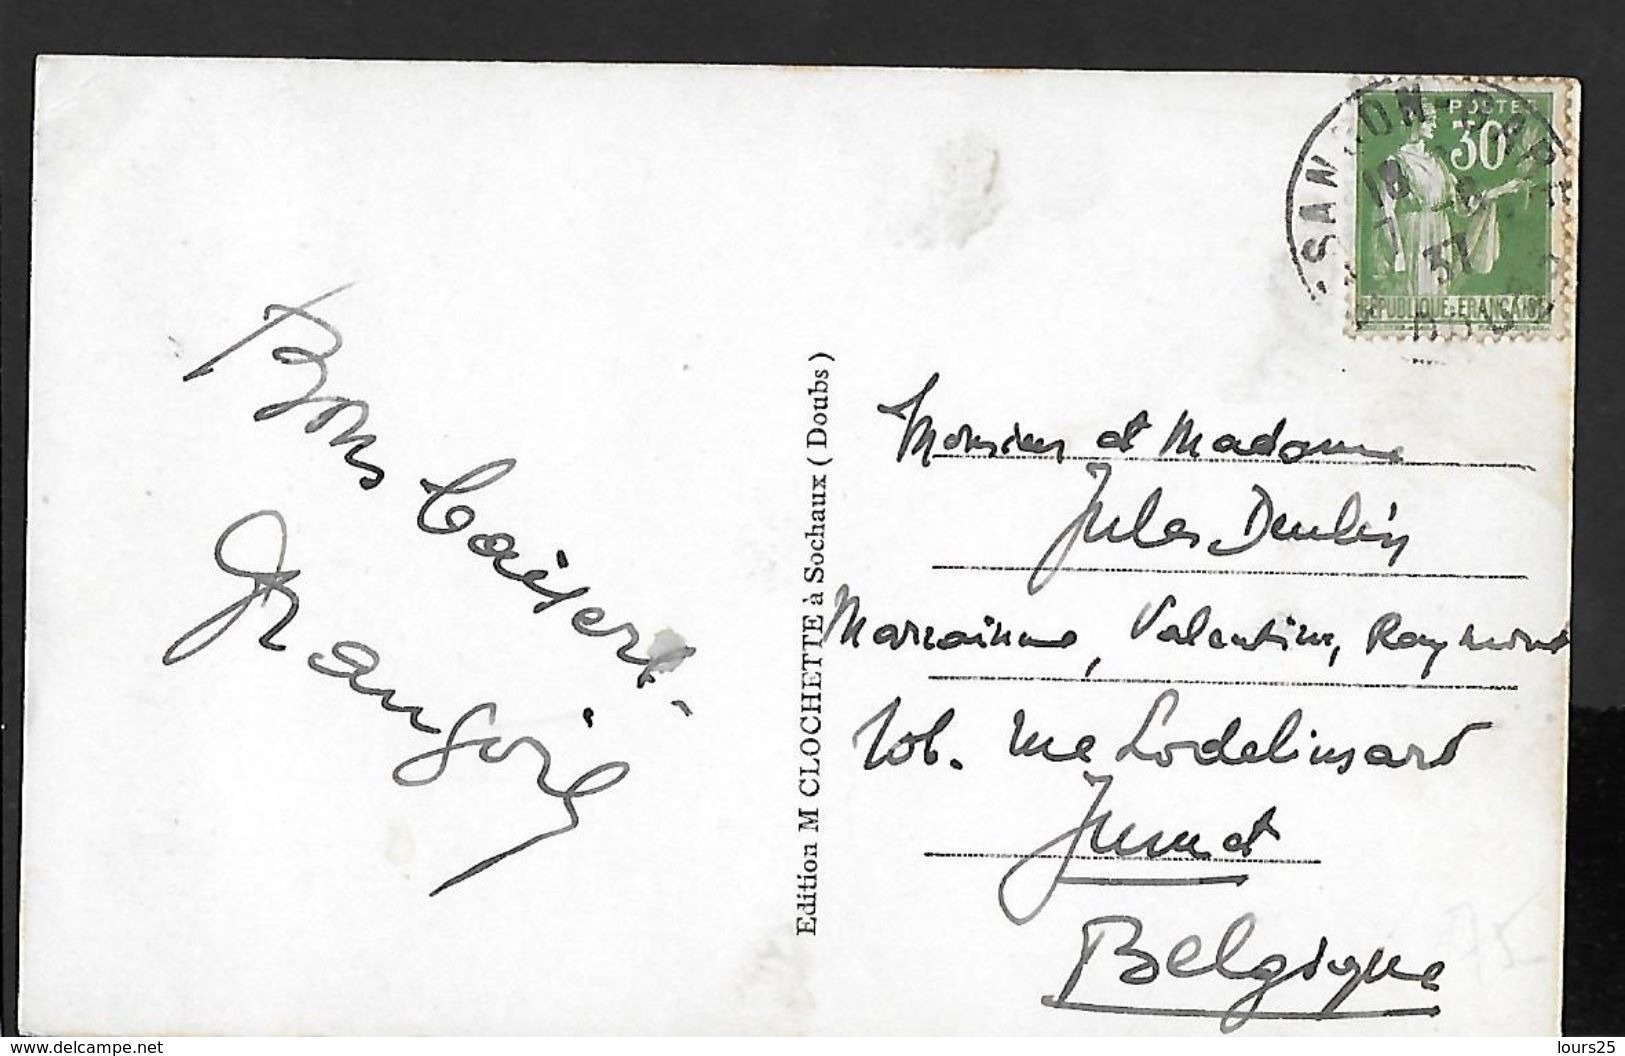 Bons baisers.
François
Edition M CLOCHETTE à Sochaux (Doubs)
POSTES
30
RÉPUBLIQUE FRANÇAISE
18
7 -8
37
Monsieur et Madame
Jules Deulin
Marrainne, Valentine, Raymond
rue Lodelinsart
Jumet
Belgique
75
www.delcampe.net
lours25